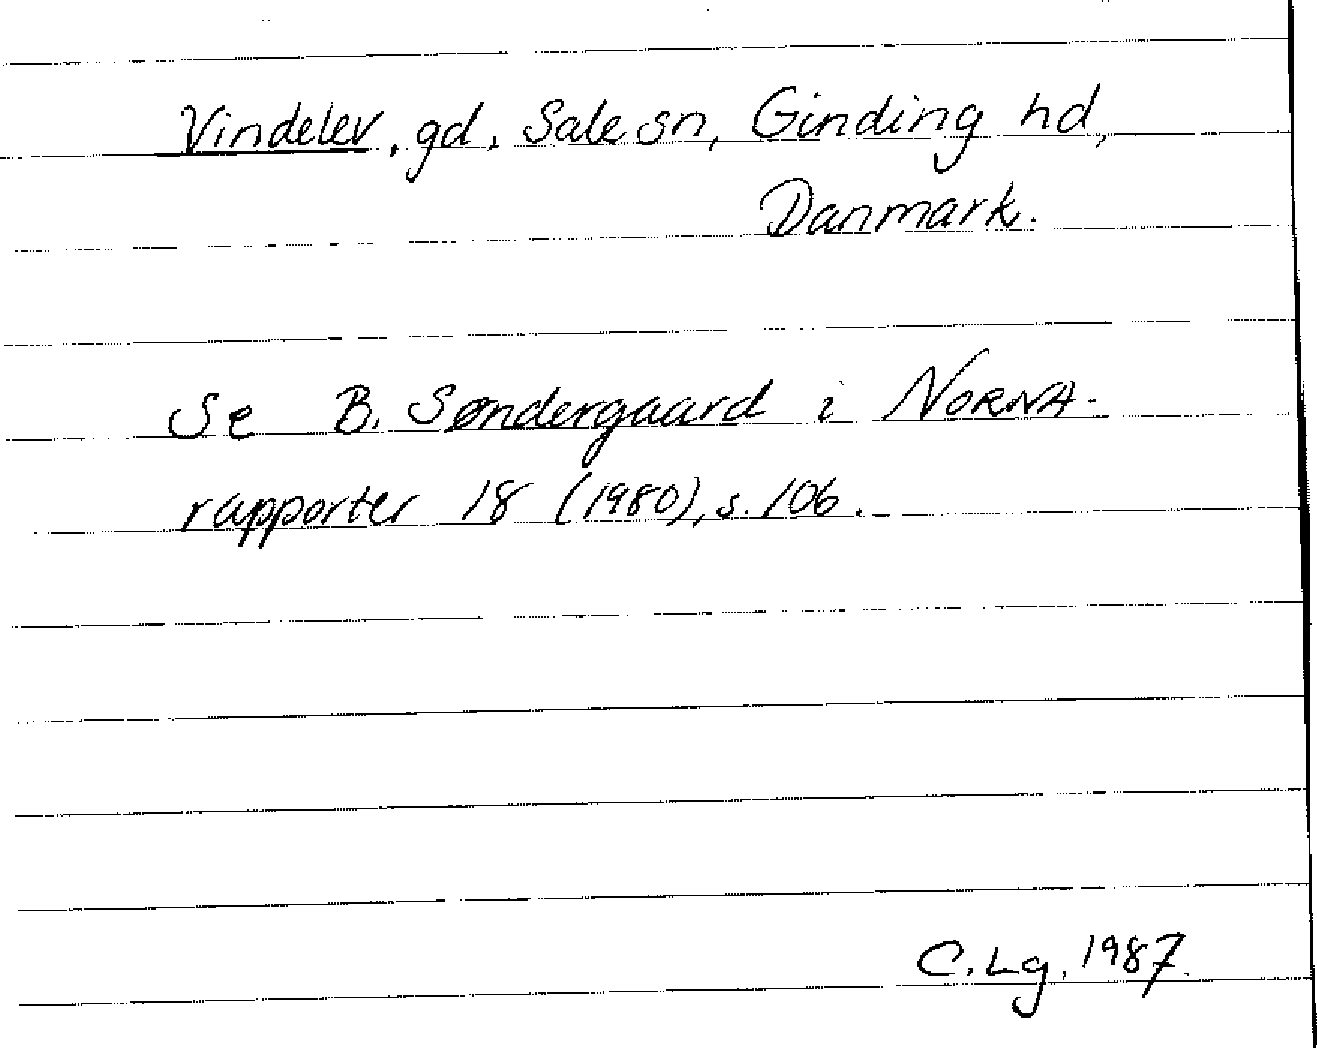 Vindelev, gd, Sale sn, Ginding hd,
Danmark.
Se B. Søndergaard i NORNA-
rapporter 18 (1980), s. 106.
C. Lg. 1987.